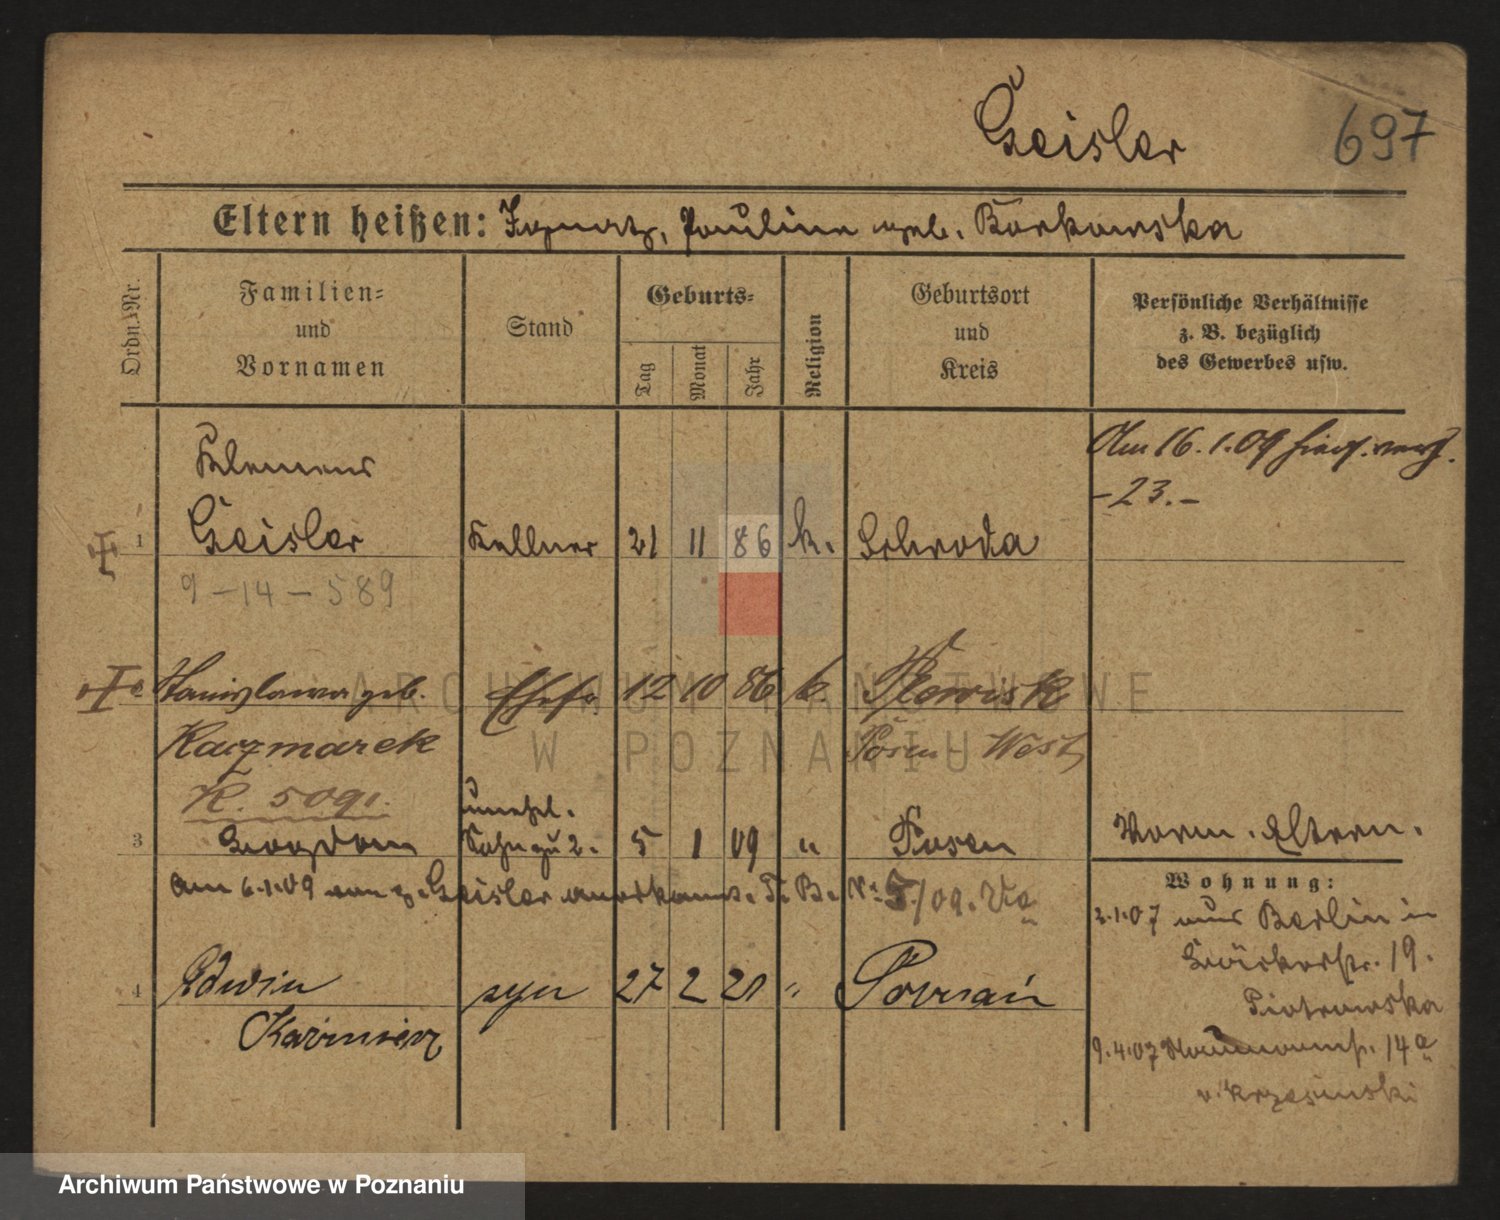 Geisler
697
Eltern heißen: Ignatz, Pauline geb. Borkowska
Ordn.-Nr.
Familien-
und
Vornamen
Stand
Geburts-
Tag
Monat
Jahr
Religion
Geburtsort
und
Kreis
Persönliche Verhältnisse
z. B. bezüglich
des Gewerbes usw.
Am 16.1.09 hier verh.
-23.-
Klemens
1 Geisler Kellner 21 11 86 k. Schroda
9-14-589
Stanislawa geb. Ehefr. 12 10 86 k. Plewisk
Kaczmarek Posen West
K. 5091.
unehl.
3 Bogdan Sohn zu 2. 5 1 09 " Posen
Vorm. Eltern.
am 6.1.09 von Geisler anerkannt. T. B. Nr. 5/09. VIa
Wohnung:
2.1.07 aus Berlin in
19.
Piotrowska
4 Edwin syn 27 2 21 " Poznań
Kazimierz
9.4.07 Naumannstr. 14a
v. Krzesinski
ARCHIWUM PAŃSTWOWE
W POZNANIU
Archiwum Państwowe w Poznaniu